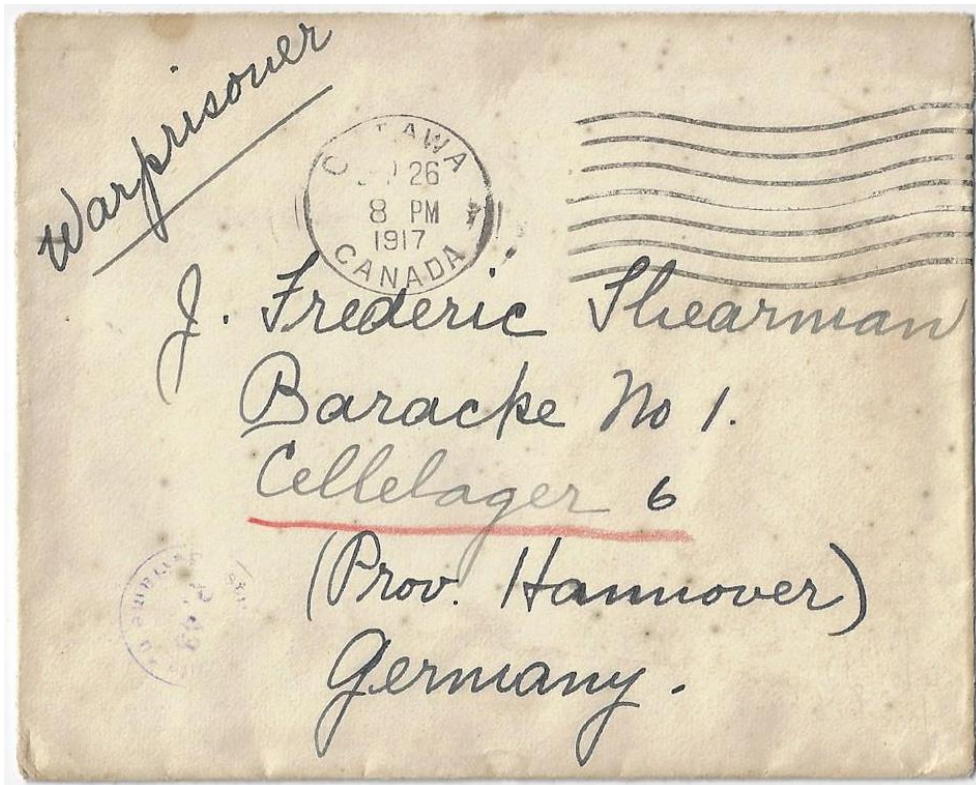 Warprisoner
OTTAWA
26
8 PM
1917
CANADA
J. Frederic Shearman
Baracke No 1.
Cellelager 6
(Prov. Hannover)
Germany.